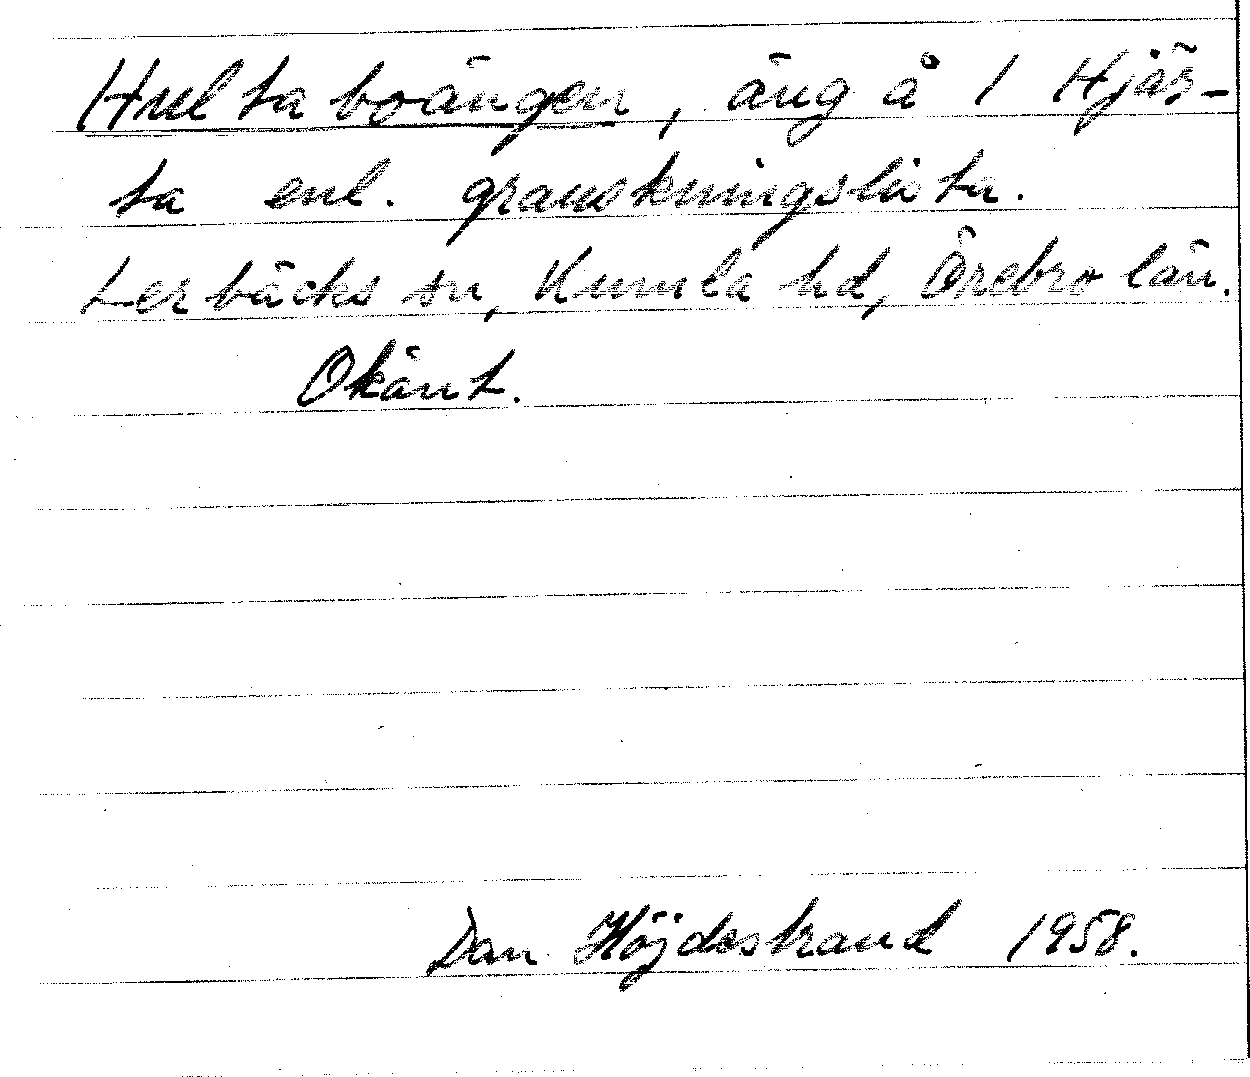 Hultaboängen, äng å 1 Hjär-
ta enl. granskningslista.
Lerbäcks sn, Kumla hd, Örebro län.
Okänt.
Dan Höjdestrand 1958.